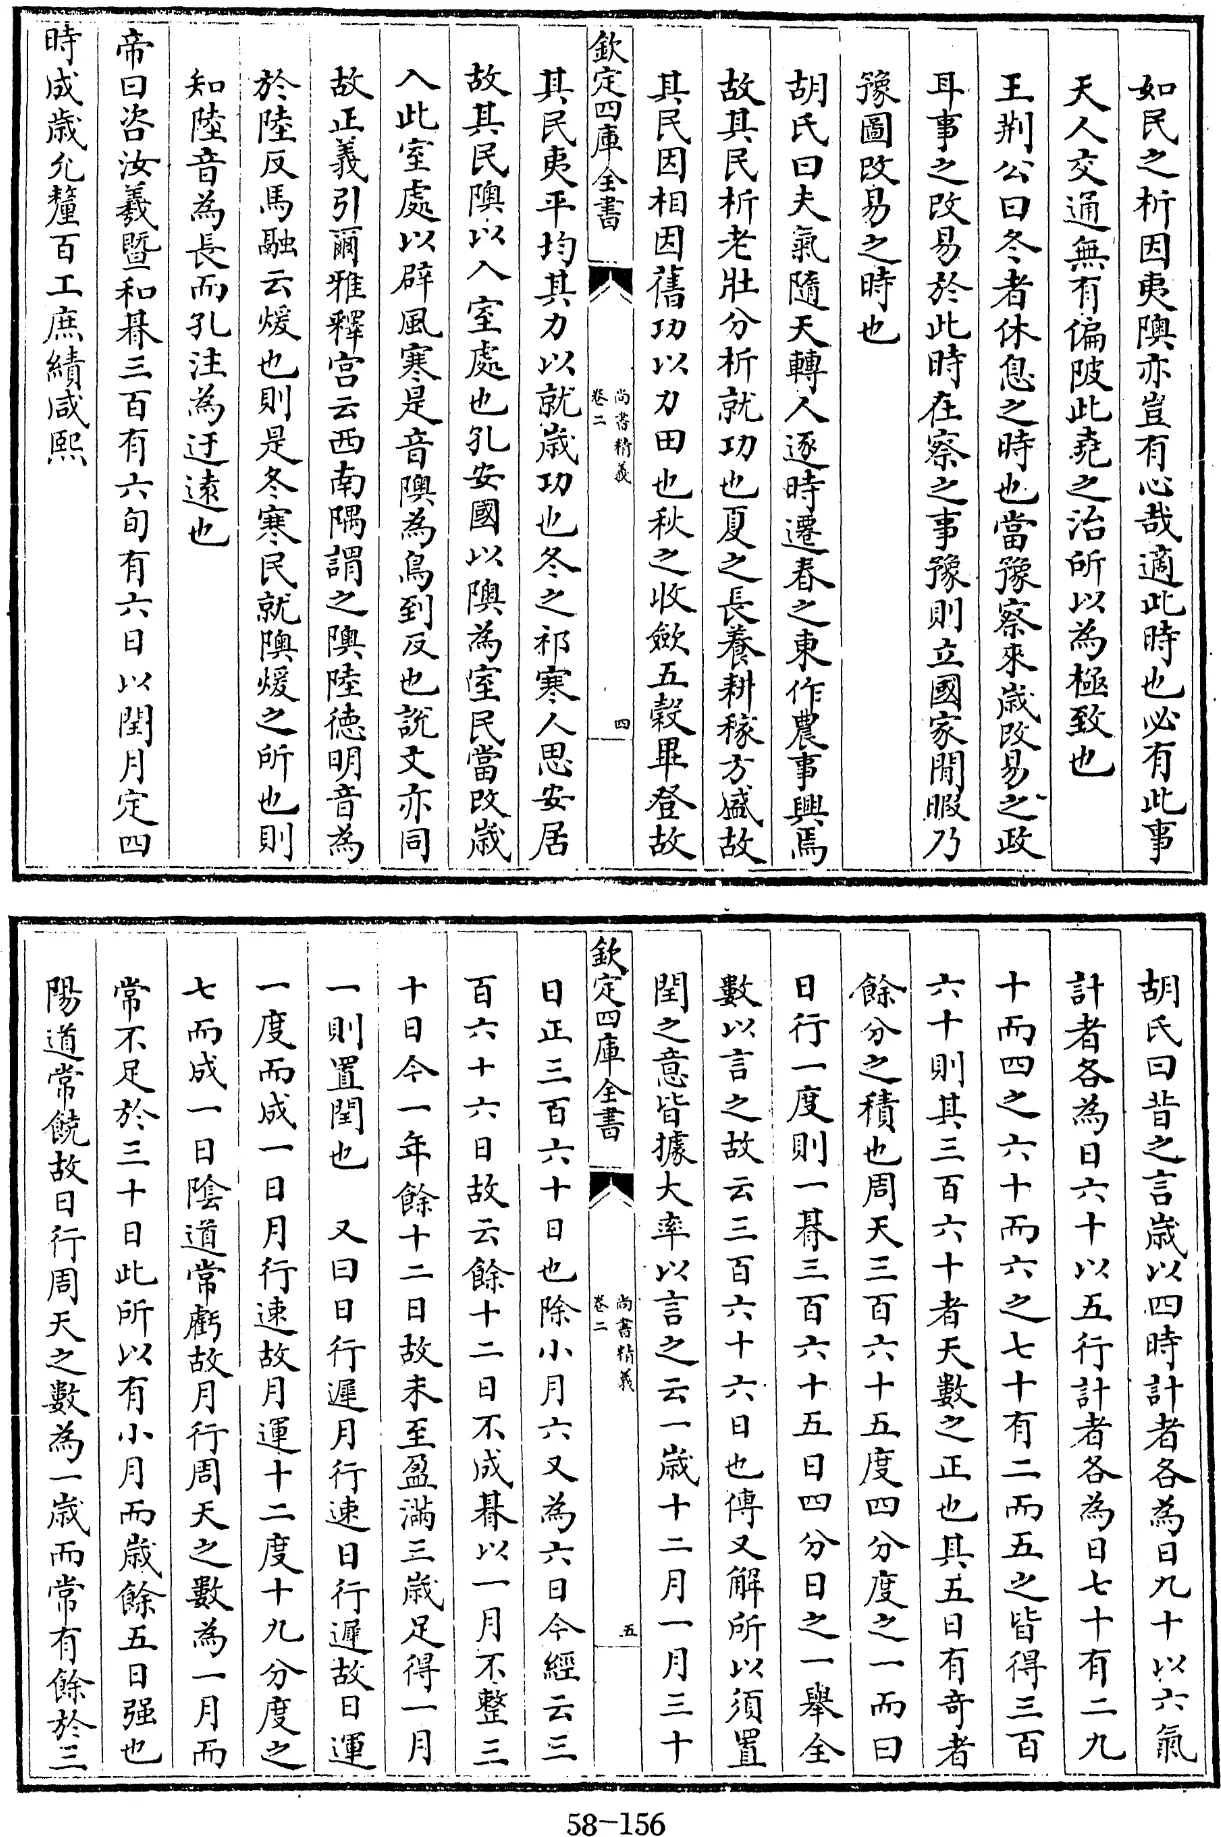 如民之析因夷隩亦豈有心哉適此時也必有此事
天人交通無有偏陂此堯之治所以為極致也
王荆公曰冬者休息之時也當豫察來歳改易之政
耳事之改易於此時在察之事豫則立國家閒暇乃
豫圖改易之時也
胡氏曰夫氣隨天轉人逐時遷春之東作農事興焉
故其民析老壯分析就功也夏之長養耕稼方盛故
其民因相因舊功以力田也秋之收斂五穀畢登故
欽定四庫全書
尚書精義
卷二
四
其民夷平均其力以就歳功也冬之祁寒人思安居
故其民隩以入室處也孔安國以隩為室民當改歳
入此室處以辟風寒是音隩為烏到反也說文亦同
故正義引爾雅釋宫云西南隅謂之隩陸德明音為
於陸反馬融云煖也則是冬寒民就隩煖之所也則
知陸音為長而孔注為迂遠也
帝曰咨汝羲暨和朞三百有六旬有六日以閏月定四
時成歳允釐百工庶績咸熙
胡氏曰昔之言歳以四時計者各為日九十以六氣
計者各為日六十以五行計者各為日七十有二九
十而四之六十而六之七十有二而五之皆得三百
六十則其三百六十者天數之正也其五日有奇者
餘分之積也周天三百六十五度四分度之一而曰
日行一度則一朞三百六十五日四分日之一舉全
數以言之故云三百六十六日也傳又解所以須置
閏之意皆據大率以言之云一歳十二月一月三十
欽定四庫全書
尚書精義
卷二
五
日正三百六十日也除小月六又為六日今經云三
百六十六日故云餘十二日不成朞以一月不整三
十日今一年餘十二日故未至盈滿三歳足得一月
一則置閏也　又曰日行遲月行速日行遲故日運
一度而成一日月行速故月運十二度十九分度之
七而成一日陰道常虧故月行周天之數為一月而
常不足於三十日此所以有小月而歳餘五日强也
陽道常饒故日行周天之數為一歳而常有餘於三
58-156